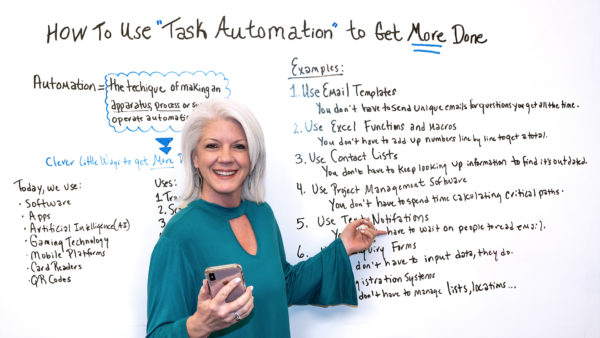 How To Use "Task Automation" to Get More Done
Automation = the techique of making an
apparatus, process or
operate automati
Clever Little Ways to get More
Today, we use:
• Software
• Apps
• Artificial Intelligence (AI)
• Gaming Technology
• Mobile Platforms
• Card Readers
• QR Codes
Uses:
1.
2.
3.
Examples:
1. Use Email Templates
You don't have to send unique emails for questions you get all the time.
2. Use Excel Functions and Macros
You don't have to add up numbers line by line to get a total.
3. Use Contact Lists
You don't have to keep looking up information to find it's outdated.
4. Use Project Management Software
You don't have to spend time calculating critical paths.
5. Use Notifations
have to wait on people to read email.
6. Forms
don't have to input data, they do.
Systems
don't have to manage lists, locations...